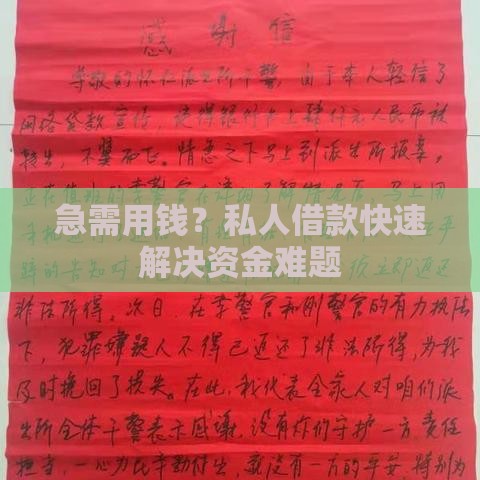 感谢信
尊敬的怀仁派出所干警，由于本人轻信了
网络贷款宣传，使得银行卡上肆仟元人民币被
转出，不翼而飞。情急之下马上到派出所报案。
正在值班的李警官在详细了解情况后，马上用
急需用钱？私人借款快速
解决资金难题
非法所得。次日，在李警官和刚警官的有力执法
下，犯罪嫌疑人不得已返还了非法所得，为我
及时挽回了损失。在此，我代表全家人对咱们派
出所全体干警表示感谢，没有你们守护一方，责任
担当，一心为民辛勤付出，就没有一方的平安，特别为